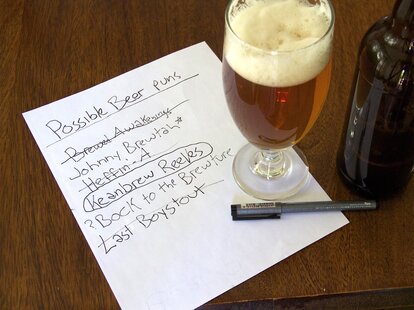 Possible Beer puns
Brewed Awakenings
Johnny Brewtah*
Heffin-A
Keanbrew Reeles
? Bock to the Brewture
Last Boystout